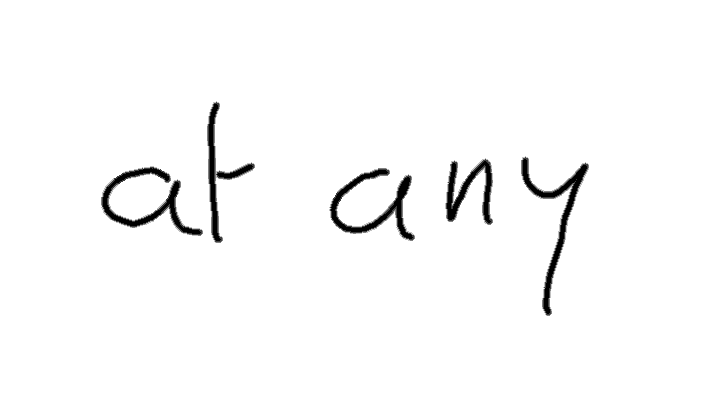 at any